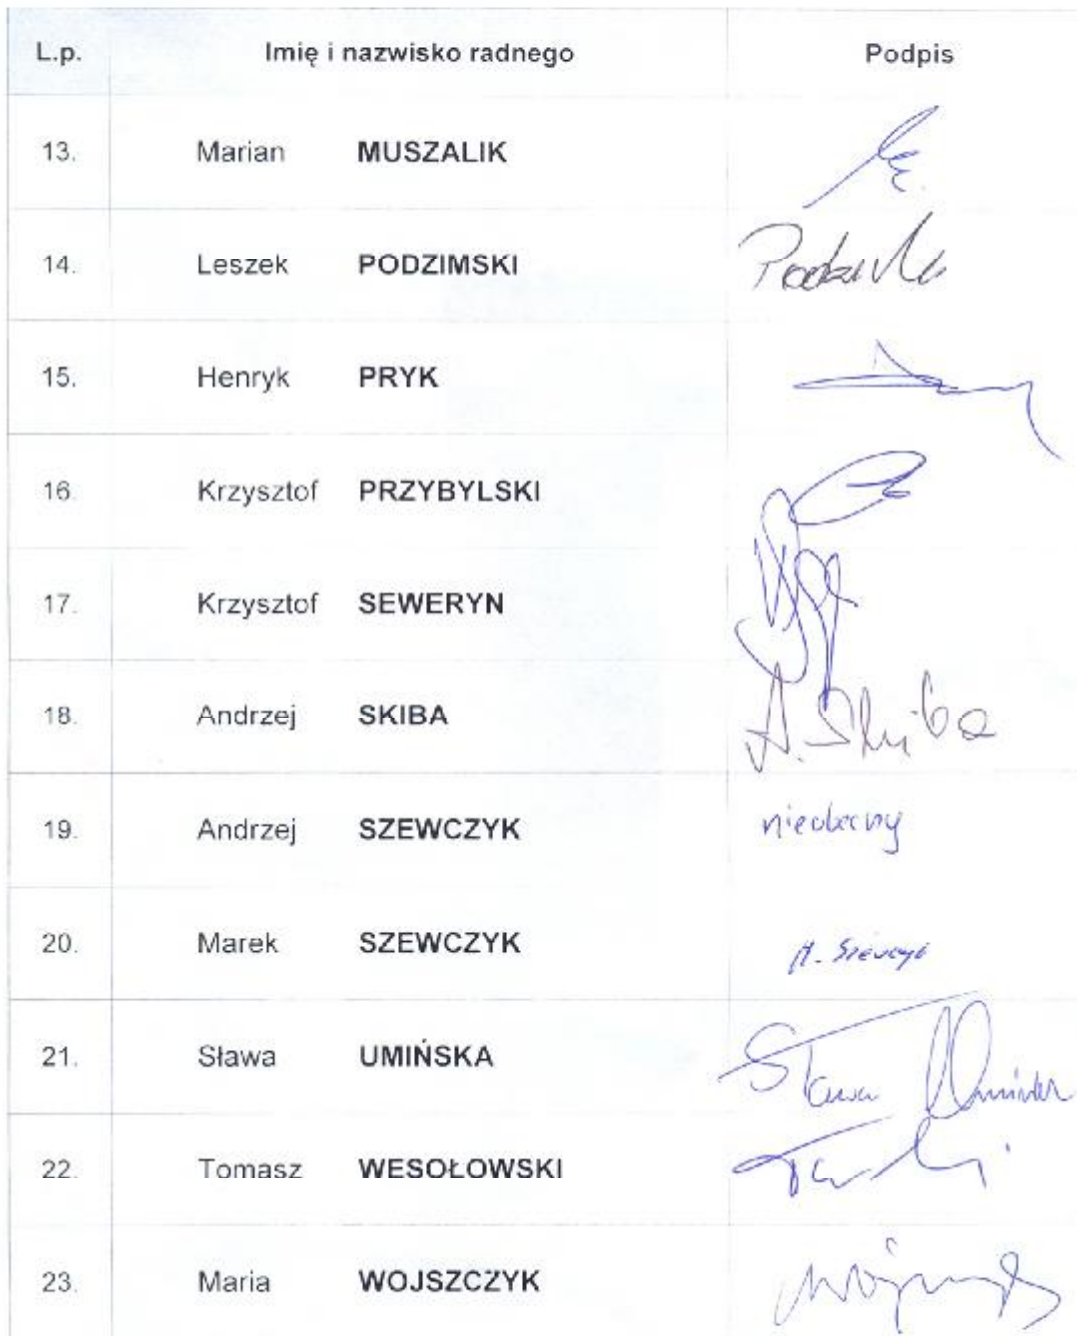 L.p. Imię i nazwisko radnego Podpis
13. Marian MUSZALIK
14. Leszek PODZIMSKI
15. Henryk PRYK
16. Krzysztof PRZYBYLSKI
17. Krzysztof SEWERYN
18. Andrzej SKIBA A. Skiba
19. Andrzej SZEWCZYK nieobecny
20. Marek SZEWCZYK M. Szewczyk
21. Sława UMIŃSKA Sława Umińska
22. Tomasz WESOŁOWSKI
23. Maria WOJSZCZYK